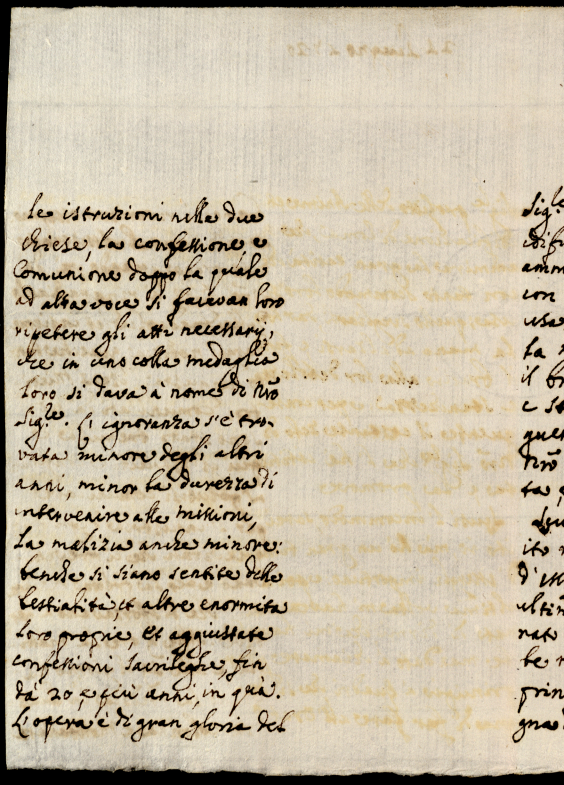 le istruzioni nelle due
chiese, la confessione, e
Comunione doppo la quale
ad alta voce si facevan loro
ripetere gli atti necessarij,
che in uno colla medaglia
loro si dava à nome di Nrõ
Sig.le. L'ignoranza s'è tro-
vata minore degli altri
anni, minor la durezza di
intervenire alle missioni,
La malizia anche minore:
benche si siano sentite delle
bestialità, et altre enormita
loro proprie, et aggiustate
confessioni sacrileghe, fin
dà 20, e più anni, in quà.
L'opera è di gran gloria del
Sig.le
edifi
amm
con
usa
la
il
e
quel
Nrõ
ta
ito
d'
ultim
nato
be
prin
gna